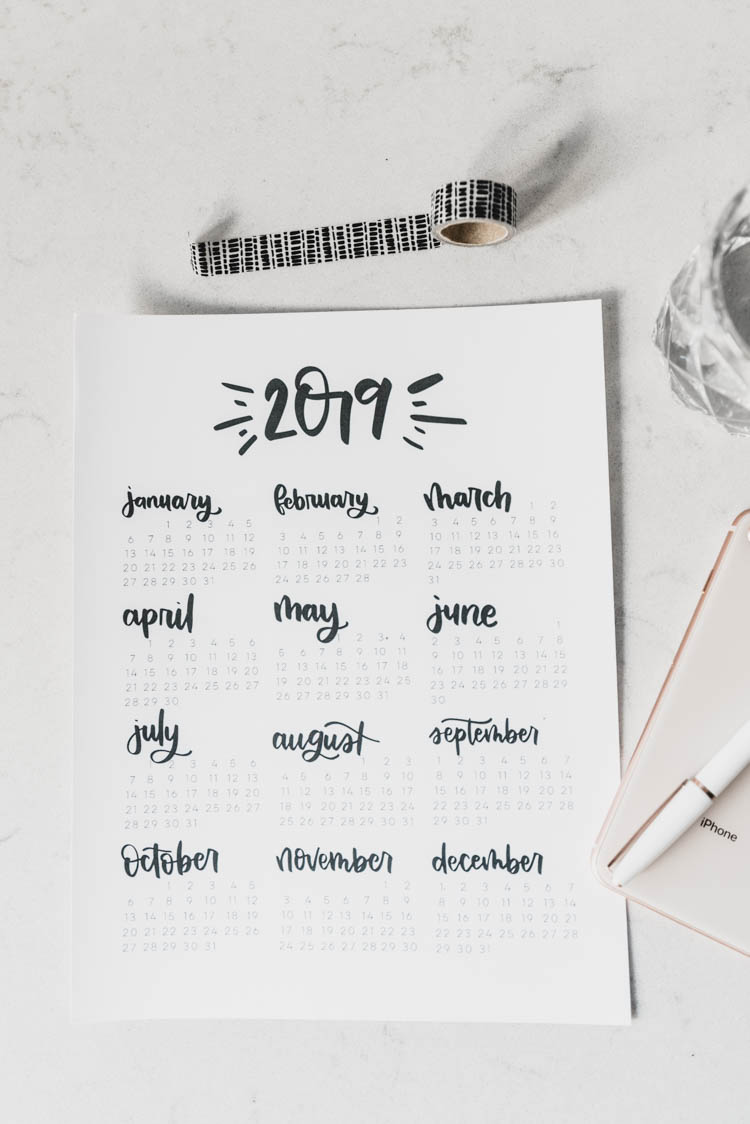 2019
january
1 2 3 4 5
6 7 8 9 10 11 12
13 14 15 16 17 18 19
20 21 22 23 24 25 26
27 28 29 30 31
february
1 2
3 4 5 6 7 8 9
10 11 12 13 14 15 16
17 18 19 20 21 22 23
24 25 26 27 28
march
1 2
3 4 5 6 7 8 9
10 11 12 13 14 15 16
17 18 19 20 21 22 23
24 25 26 27 28 29 30
31
april
1 2 3 4 5 6
7 8 9 10 11 12 13
14 15 16 17 18 19 20
21 22 23 24 25 26 27
28 29 30
may
1 2 3 4
5 6 7 8 9 10 11
12 13 14 15 16 17 18
19 20 21 22 23 24 25
26 27 28 29 30 31
june
1
2 3 4 5 6 7 8
9 10 11 12 13 14 15
16 17 18 19 20 21 22
23 24 25 26 27 28 29
30
july
1 2 3 4 5 6
7 8 9 10 11 12 13
14 15 16 17 18 19 20
21 22 23 24 25 26 27
28 29 30 31
august
1 2 3
4 5 6 7 8 9 10
11 12 13 14 15 16 17
18 19 20 21 22 23 24
25 26 27 28 29 30 31
september
1 2 3 4 5 6 7
8 9 10 11 12 13 14
15 16 17 18 19 20 21
22 23 24 25 26 27 28
29 30
october
1 2 3 4 5
6 7 8 9 10 11 12
13 14 15 16 17 18 19
20 21 22 23 24 25 26
27 28 29 30 31
november
1 2
3 4 5 6 7 8 9
10 11 12 13 14 15 16
17 18 19 20 21 22 23
24 25 26 27 28 29 30
december
1 2 3 4 5 6 7
8 9 10 11 12 13 14
15 16 17 18 19 20 21
22 23 24 25 26 27 28
29 30 31
iPhone